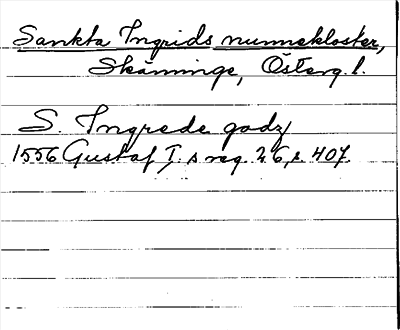 Sankta Ingrids nunnekloster,
Skänninge, Österg. l.
S. Ingrede godz
1556 Gustaf I.s reg. 26, s. 407.